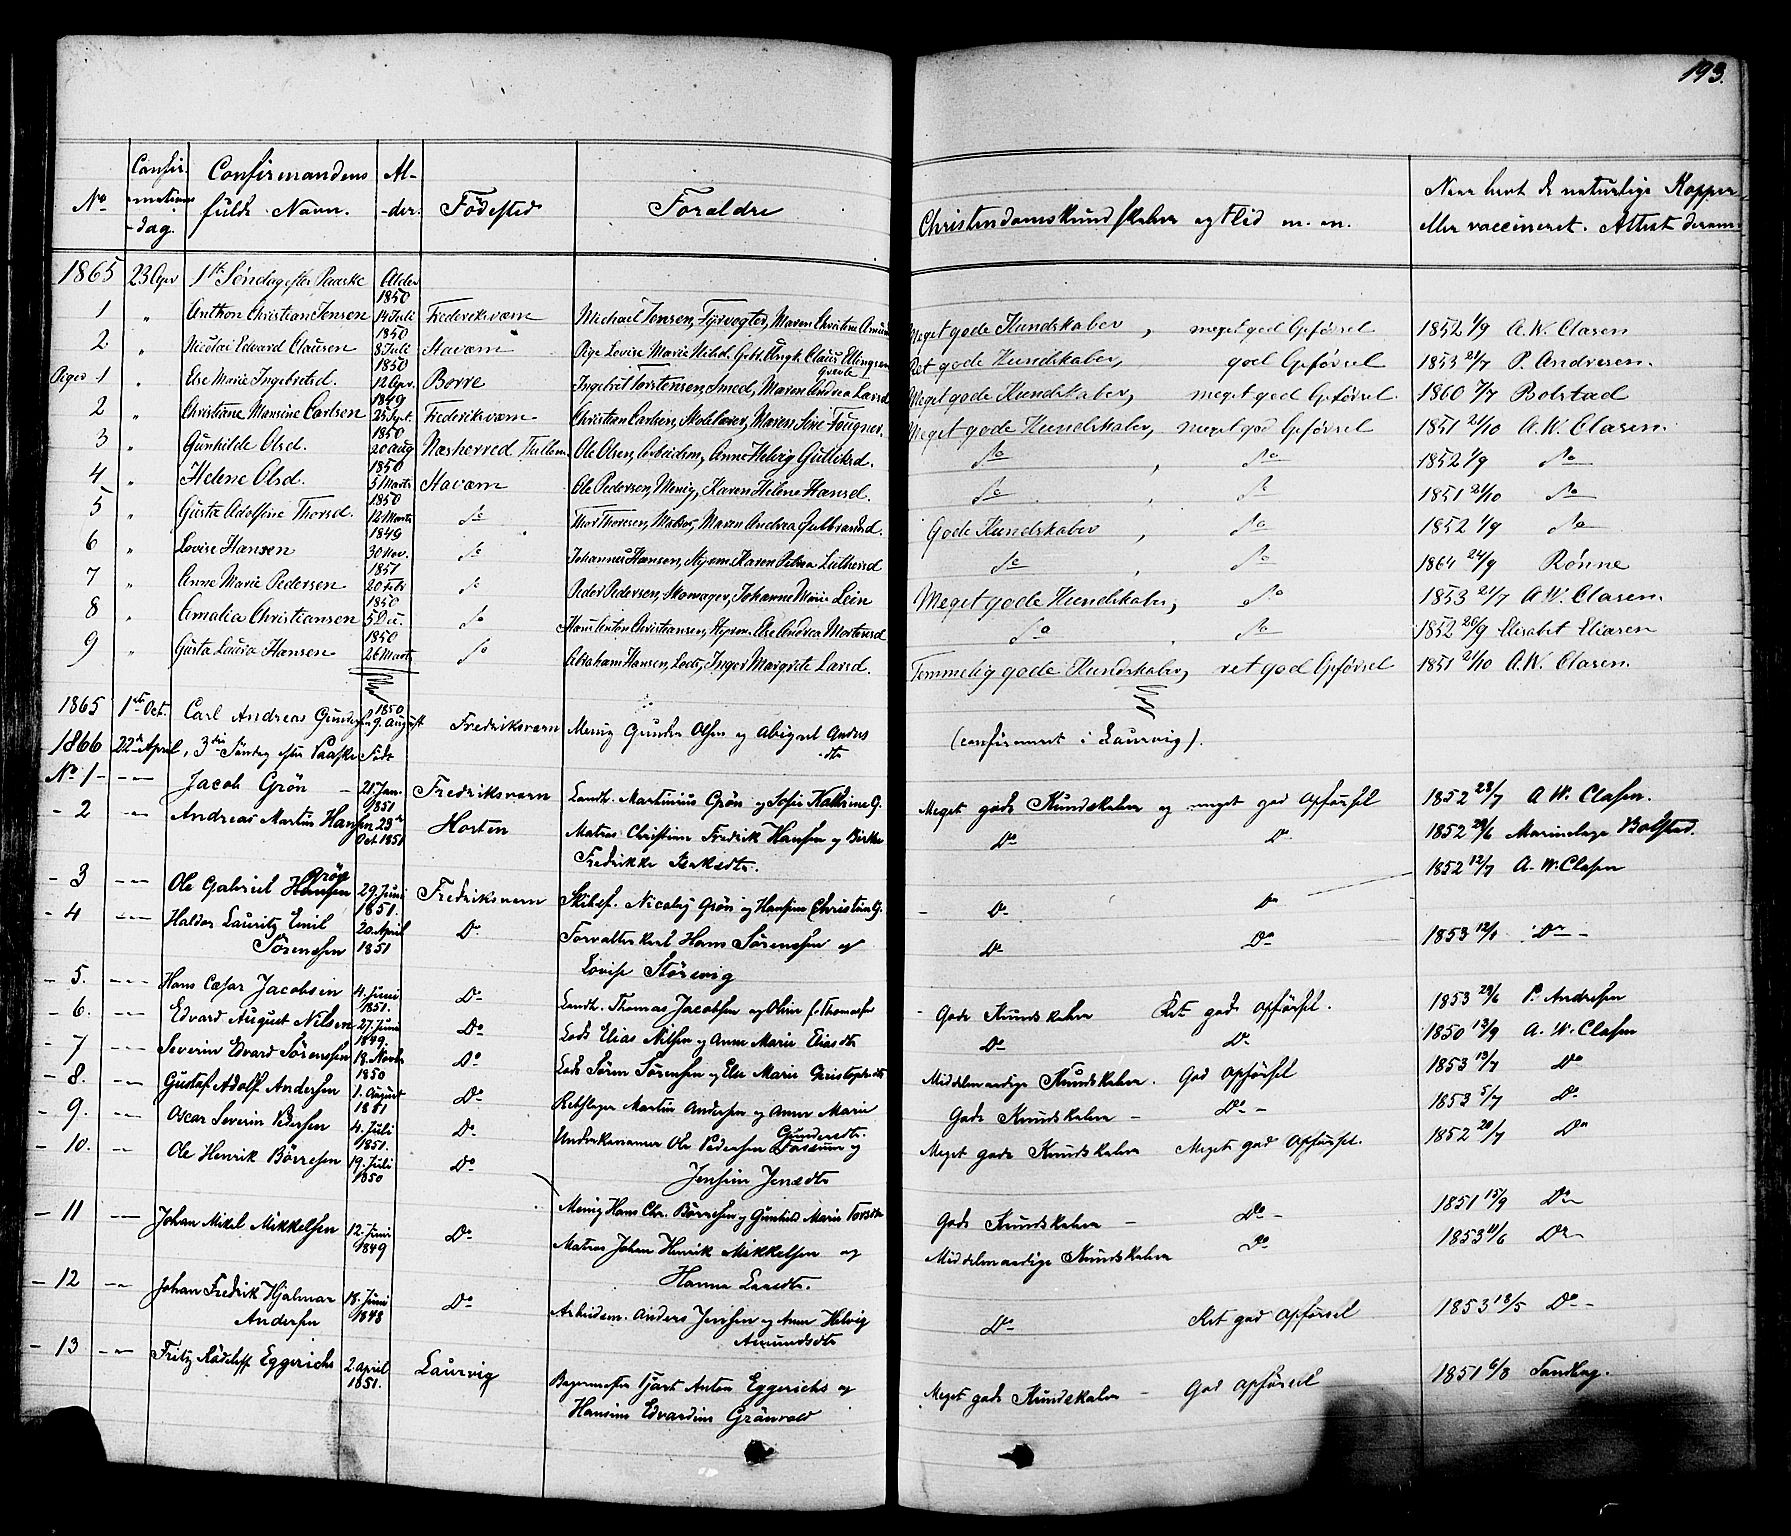 193.
No Confirmationsdag. Confirmandens fulde Navn. Alder. Födested Forældre Christendomskundskaber og Flid m. m. Naar havt de naturlige Kopper eller vaccineret. Attest derom.
1865 23 Apr 1ste Söndag efter Paaske Alder
1 " Anthon Christian Jensen 1850 14 Juli Frederiksværn Michael Jensen, Fyrvogter, Maren Christine Meget gode Kundskaber, meget god Opförsel 1852 1/9 A. W. Clasen
2 " Nicolai Edvard Clausen 1850 8 Juli Staværn Pige Lovise Marie Nilsd. Gebr. Ungk. Claus Ellingsen Ret gode Kundskaber, god Opförsel 1853 21/7 P. Andresen.
Piger 1 " Else Marie Ingebretsd. 1850 12 Apr. Borre Ingebret Torstensen, Smed, Maren Andrea Larsd Meget gode Kundskaber, meget god Opförsel 1860 7/7 Bolstad
2 " Christiane Monsine Carlsen 1849 25 Sept. Frederiksværn Christian Carlsen, Maren Sire Fougner. Meget gode Kundskaber, meget god Opförsel 1851 21/10 A. W. Clasen.
3 " Gunhilde Olsd. 1850 20 Aug Næsherred Ole Olsen, Arbeidsm, Anne Helvig Gulliksd. Do, Do 1852 1/9 Do
4 " Helene Olsd. 1850 5 Marts Staværn Ole Pedersen, Menig, Karen Helene Hansd. Do, Do 1851 21/10 Do
5 " Gusta Adolfine Thorsd. 1850 12 Marts Do Thor Thoresen, Matros, Maren Andrea Gulbrandsd. Gode Kundskaber, Do 1852 1/9 Do
6 " Lovise Hansen 1849 30 Nov. Do Johannes Hansen, Styrm. Karen Petrea Do, Do 1864 24/9 Rönne
7 " Anne Marie Pedersen 1851 20 Feb Do Peder Pedersen, Skomager, Johanne Marie Lein Meget gode Kundskaber, Do 1853 21/7 A. W. Clasen.
8 " Amalia Christiansen 1850 5 Do Hans Anton Christiansen, Styrm. Else Andrea Mortensd Do, Do 1852 20/9 Elisabet Eliasen
9 " Gusta Laura Hansen 1850 26 Marts Do Abraham Hansen, Lods, Inger Margrete Larsd. Temmelig gode Kundskaber, ret god Opförsel 1851 21/10 A. W. Clasen.
1865 1ste Oct. Carl Andreas 1850 9. August Fredriksværn Menig Gunder Olsen og Abigael Andersdtr (confirmeret i Laurvig).
1866 22de April, 3die Söndag efter Paaske Födt
No 1 - Jacob Grön - 21. Jan. 1851 Fredriksværn Landh. Martinius Grön og Sofie Kathrine G. Meget gode Kundskaber og meget god Opförsel 1852 28/7 A. W. Clasen.
- 2 Andreas Martus Hansen 23de Oct. 1851 Horten Matros Christian Fredrik Hansen og Birte
Fredrikke Do Do 1852 29/6 Marinelæge Bolstad.
- 3 Ole Gabriel Hansen Grön 29. Juni 1851. Fredriksværn Skibsf. Nicolaj Grön og Hansine Christine G. - Do Do 1852 12/7 A. W. Clasen
- 4 Haldor Lauritz Emil
Sörensen 20. April 1851 Do Forvalterkarl Hans Sörensen og
Lovise Störevig Do Do 1853 Do -
- 5. Hans Cæsar Jacobsen 4. Juni 1851. Do Landh. Thomas Jacobsen og Oline f. Thomasen - Gode Kundskaber Ret god Opförsel. 1853 29/6 P. Andresen
- 6. Edvard August Nilsen 27. Juni 1849. Do Lods Elias Nilsen og Anne Marie Eliasdtr Do Do 1850 13/9 A. W. Clasen
- 7 Severin Edvard Sörensen 18. Novbr 1850 Do Lods Sören Sörensen og Else Marie Christophersdtr Middelmaadige Kundskaber. God Opförsel 1853 13/7 Do
- 8. Gustaf Adolf Andersen 1. August 1851 Do Rebslager Martin Andersen og Anne Marie
Gundersdtr. Gode Kundskaber - Do - 1853 5/7 Do
- 9. Oscar Severin Pedersen 4. Juli 1851. Do Underkanoner Ole Pedersen Fosserum og
Jensine Jensdtr Meget gode Kundskaber Meget god Opförsel. 1852 20/7 Do
- 10. Ole Henrik Börresen 19. Juli 1850 Do Menig Hans Chr. Börresen og Gunhild Marie Torsdtr Gode Kundskaber - Do - 1851 15/9 Do
- 11 Johan Mikel Mikkelsen 12. Juni 1849 Do Matros Johan Henrik Mikkelsen og
Hanna Larsdtr. Middelmaadige Kundskaber Do 1853 11/6 Do
- 12 Johan Fredrik Hjalmar
Andersen 18. Juni 1848 Do Arbeidsm. Anders Jensen og Anne Helvig
Amundsdtr Do Ret god Opförsel 1853 18/5 Do -
- 13 Fritz Rudolff Eggerichs 2. April 1851. Laurvig Bagermester Tjart Anton Eggerichs og
Hansine Edvardine Grönvold Meget gode Kundskaber - God Opförsel 1851 6/8 Sandberg.